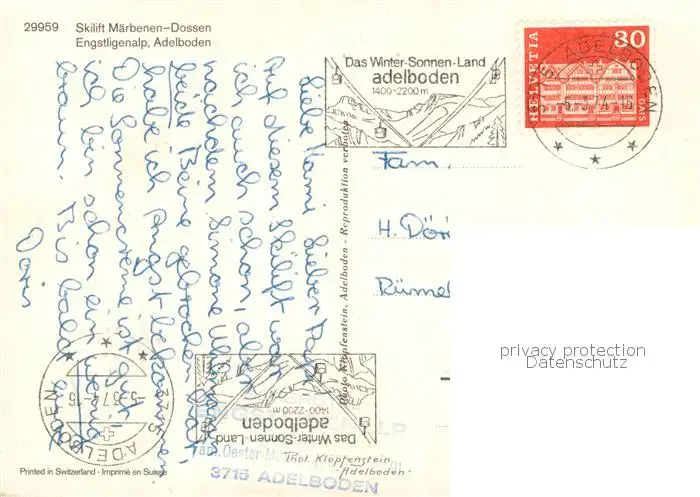 29959 Skilift Märbenen-Dossen
Engstligenalp, Adelboden
Liebe Mami Lieber Papi
Auf diesem Skilift war
ich auch schon, aber
nachdem Simone
beide Beine gebrochen hat,
habe ich Angst bekommen
Die Sonnencreme ist gut
ich bin schon ein wenig
braun. Bis bald eure
Doris
Das Winter-Sonnen-Land
adelboden
1400-2200 m
HELVETIA
30
GAIS
ADELBODEN
Fam.
H. Döri
Rümel
Photo Klopfenstein, Adelboden - Reproduktion verboten
privacy protection
Datenschutz
3715 ADELBODEN
Das Winter-Sonnen-Land
adelboden
1400-2200 m
Fam. Oester
3715 ADELBODEN
Phot. Klopfenstein
-Adelboden-
Printed in Switzerland - Imprimé en Suisse